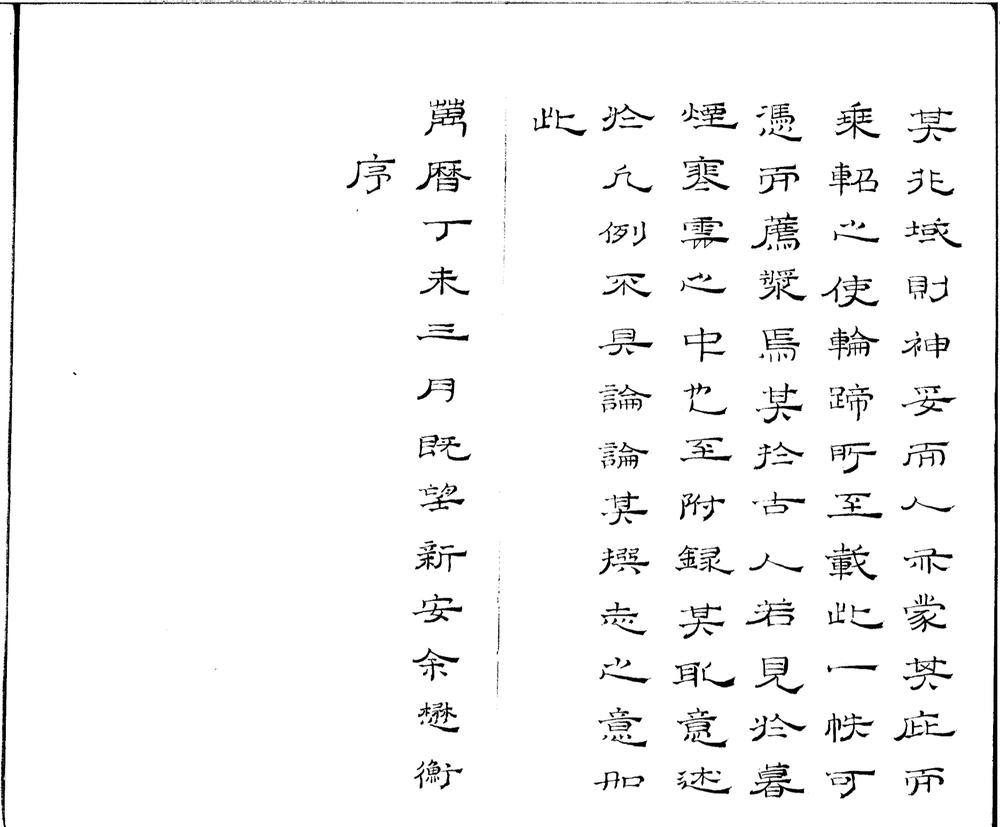 其兆域則神妥而人亦蒙其庇而
乗軺之使輪蹄所至載此一帙可
憑而薦漿焉其於古人若見於暮
煙寒雲之中也至附録其取意述
於凡例不具論論其撰志之意如
此
萬曆丁未三月既望新安余懋衡
序